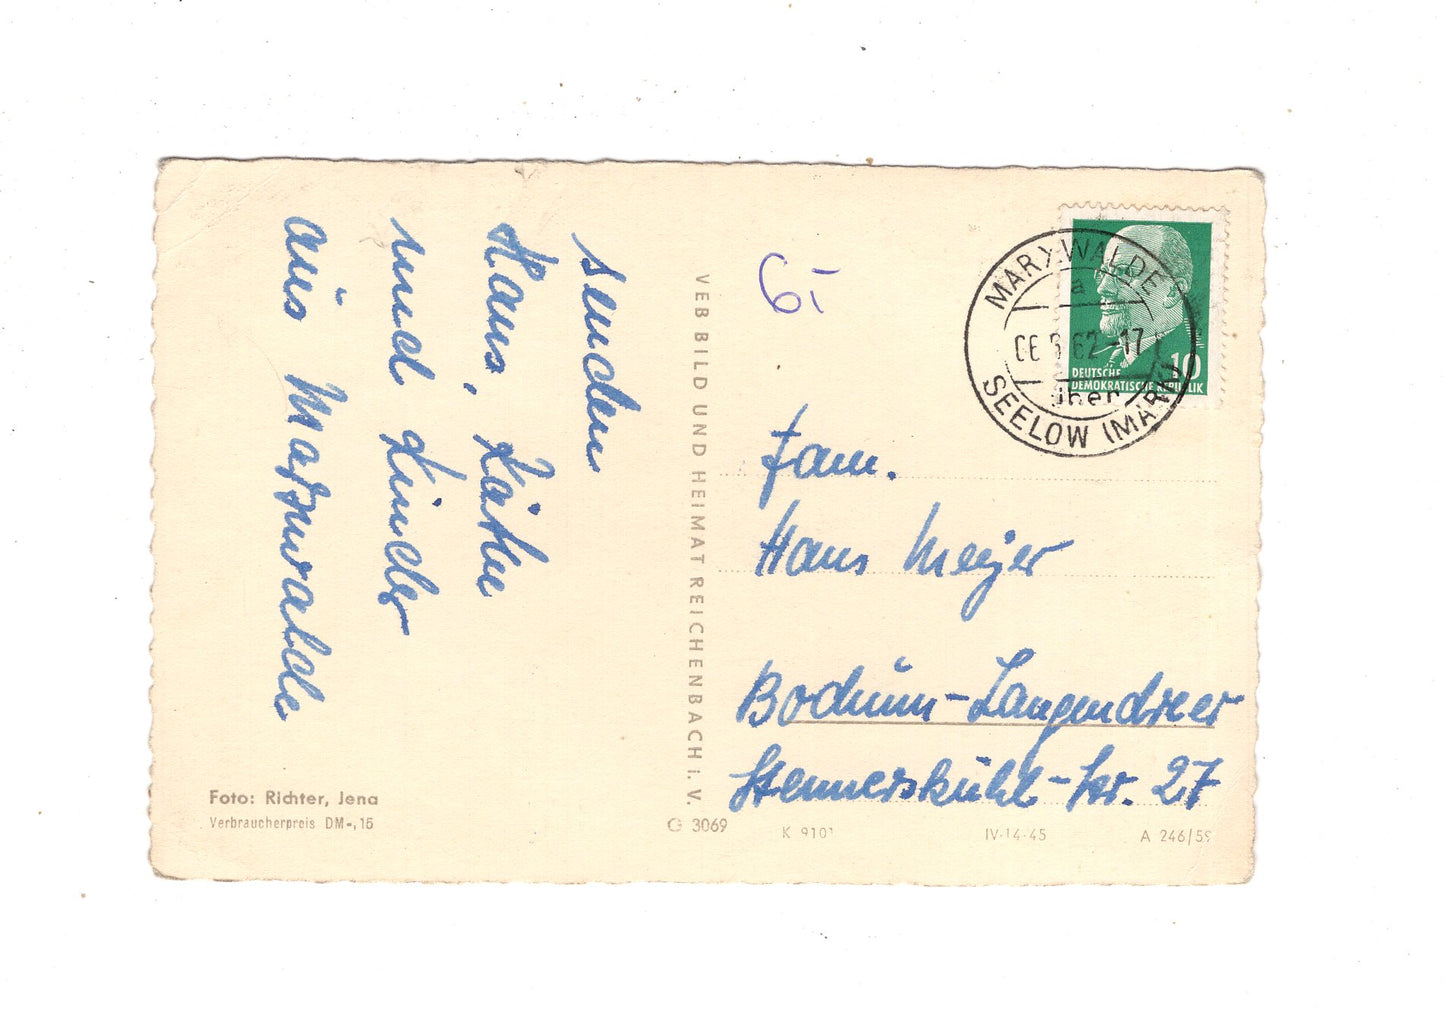 senden
Hans, Käthe
und Kinder
aus Marxwalde
Foto: Richter, Jena
Verbraucherpreis DM -,15
VEB BILD UND HEIMAT REICHENBACH i. V.
G 3069
MARXWALDE
a
62-17
über
SEELOW (MARK)
10
DEUTSCHE
DEMOKRATISCHE REPUBLIK
Fam.
Hans Meyer
Bochum-Langendreer
Stennerskuhl-Str. 27
K 9101
IV-14-45
A 246/59